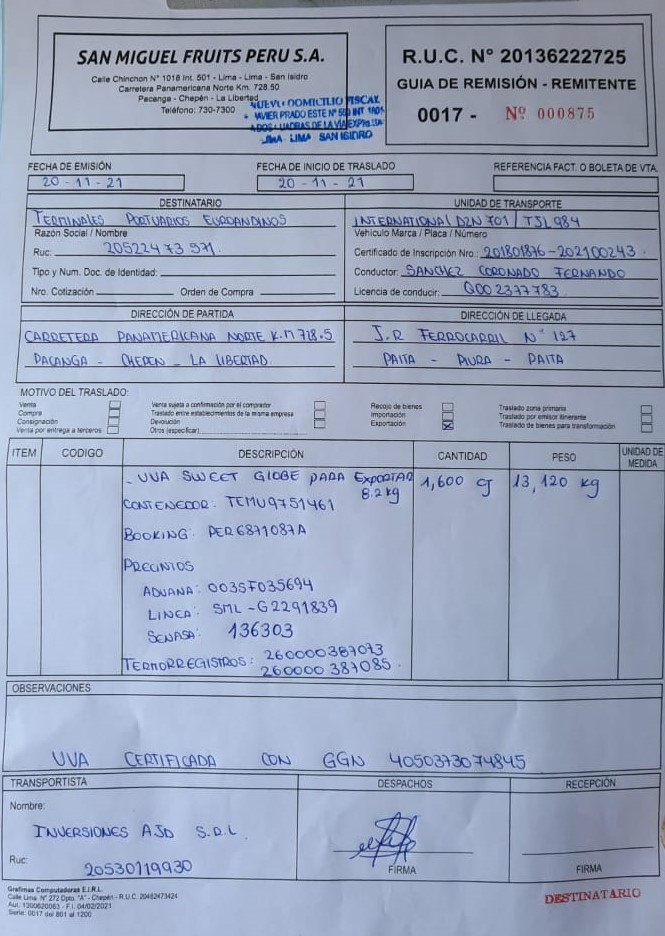 SAN MIGUEL FRUITS PERU S.A.
Calle Chinchon N° 1018 Int. 501 - Lima - Lima - San Isidro
Carretera Panamericana Norte Km. 728.50
Pacanga - Chepén - La Libertad
Teléfono: 730-7300
NUEVO DOMICILIO FISCAL
JAVIER PRADO ESTE N° 560 INT 1801
A DOS CUADRAS DE LA VIA EXPRESA
LIMA LIMA SAN ISIDRO
R.U.C. N° 20136222725
GUIA DE REMISIÓN - REMITENTE
0017 - Nº 000875
FECHA DE EMISIÓN
20 - 11 - 21
FECHA DE INICIO DE TRASLADO
20 - 11 - 21
REFERENCIA FACT. O BOLETA DE VTA.
DESTINATARIO
TERMINALES PORTUARIOS EUROANDINOS
Razón Social / Nombre
Ruc: 20522473571
Tipo y Num. Doc. de Identidad:
Nro. Cotización Orden de Compra
UNIDAD DE TRANSPORTE
INTERNATIONAL DZN 701 / TSL 984
Vehículo Marca / Placa / Número
Certificado de Inscripción Nro.: 201801876-202100243
Conductor: SANCHEZ CORONADO FERNANDO
Licencia de conducir: Q002377783
DIRECCIÓN DE PARTIDA
CARRETERA PANAMERICANA NORTE K.M 728.5
PACANGA - CHEPEN - LA LIBERTAD
DIRECCIÓN DE LLEGADA
J.R FERROCARRIL N° 127
PAITA - PIURA - PAITA
MOTIVO DEL TRASLADO:
Venta
Compra
Consignación
Venta por entrega a terceros
Venta sujeta a confirmación por el comprador
Traslado entre establecimientos de la misma empresa
Devolución
Otros (especificar)
Recojo de bienes
Importación
Exportación X
Traslado zona primaria
Traslado por emisor itinerante
Traslado de bienes para transformación
ITEM CODIGO DESCRIPCIÓN CANTIDAD PESO UNIDAD DE MEDIDA
- UVA SWEET GLOBE PARA EXPORTAR 1,600 CJ 13,120 kg
8.2 kg
CONTENEDOR: TEMU9751461
BOOKING: PER6871087A
PRECINTOS
ADUANA: 003SF035694
LINEA: SML-G2291839
SENASA: 136303
TERMORREGISTROS: 260000387073
260000387085.
OBSERVACIONES
UVA CERTIFICADA CON GGN 4050373074845
TRANSPORTISTA
Nombre:
INVERSIONES AJD S.R.L
Ruc: 20530119930
DESPACHOS
FIRMA
RECEPCIÓN
FIRMA
Grafimas Computadoras E.I.R.L.
Calle Lima N° 272 Dpto. "A" - Chepén - R.U.C. 20482473424
Aut. 1300620063 - F.I. 04/02/2021
Serie: 0017 del 801 al 1200
DESTINATARIO